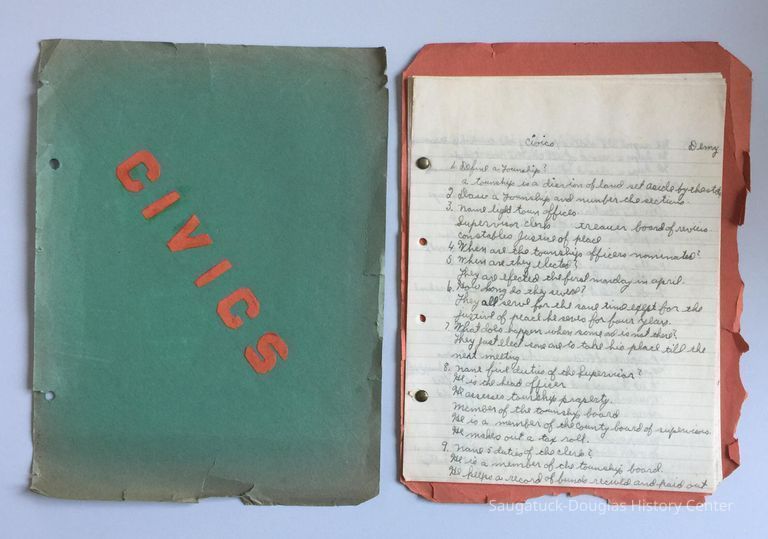 CIVICS
Civics Demy
1. Define a Township?
a township is a division of land set aside by the state
2. a Township and number the sections.
3. name eight town offices
Supervisor clerk treasuer board of review
constables justice of peace
4. When are the township officers nominated?
5. When are they elected?
They are elected the first monday in april.
6. How long do they serve?
They all serve for the same time exept for the
justice of peace he serves for four years.
7. What does happen when some one is not there?
They just elect some one to take his place till the
next meeting
8. name five duties of the Supervisor?
He is the head officer
He assesses township property.
Member of the township board
He is a member of the county board of supervisors.
He makes out a tax roll.
9. name 5 duties of the clerk?
He is a member of the township board.
He keeps a record of funds and paid out
Saugatuck-Douglas History Center